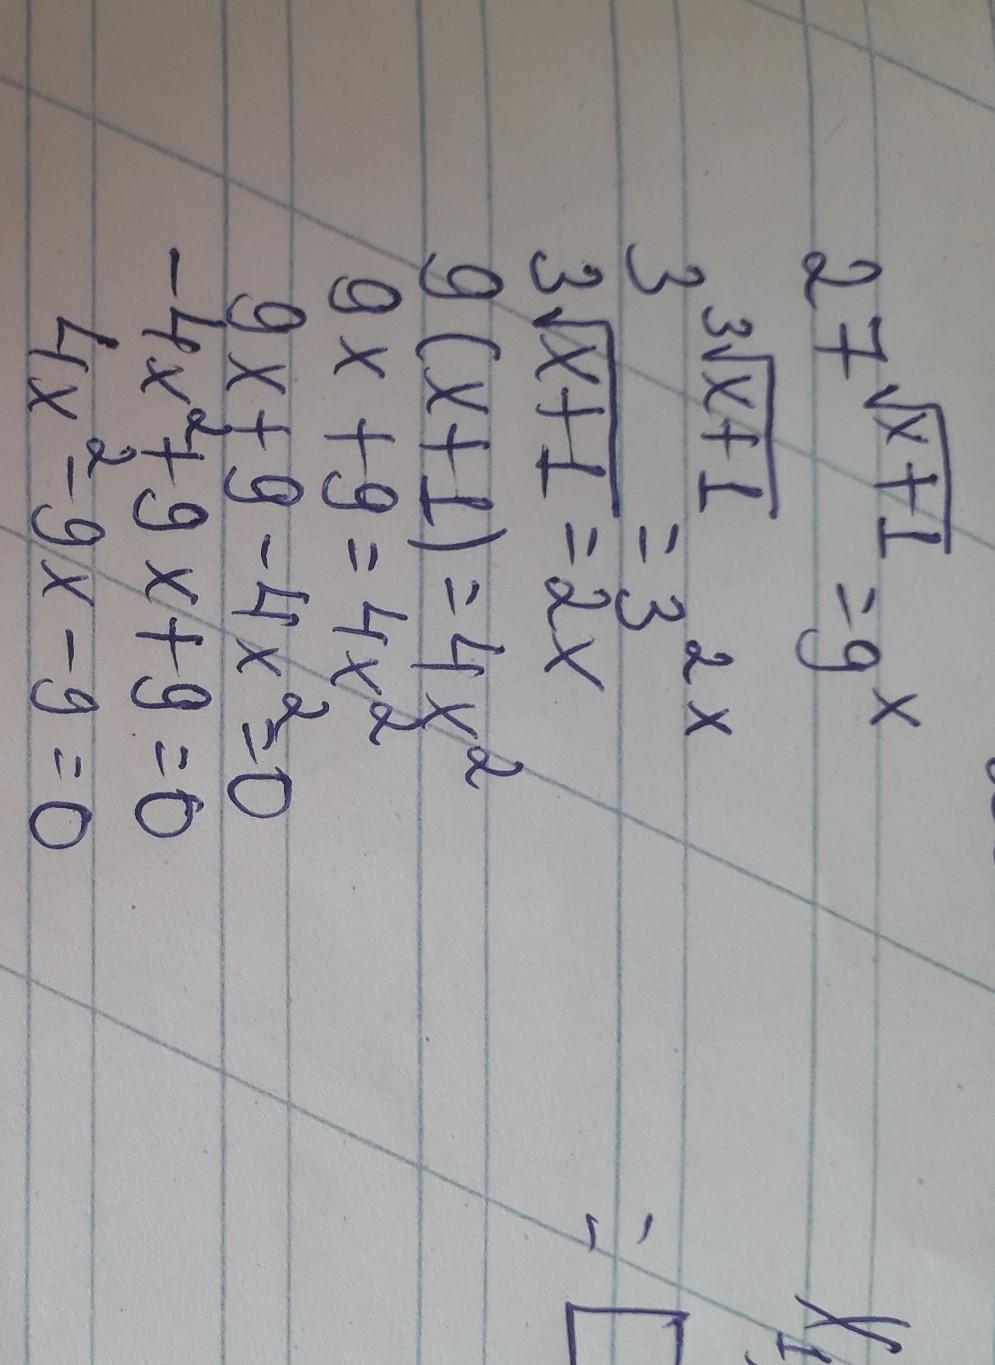 27^√(x+1) = 9^x
3^(3√(x+1)) = 3^(2x)
3√(x+1) = 2x
9(x+1) = 4x²
9x + 9 = 4x²
9x + 9 - 4x² = 0
-4x² + 9x + 9 = 0
4x² - 9x - 9 = 0